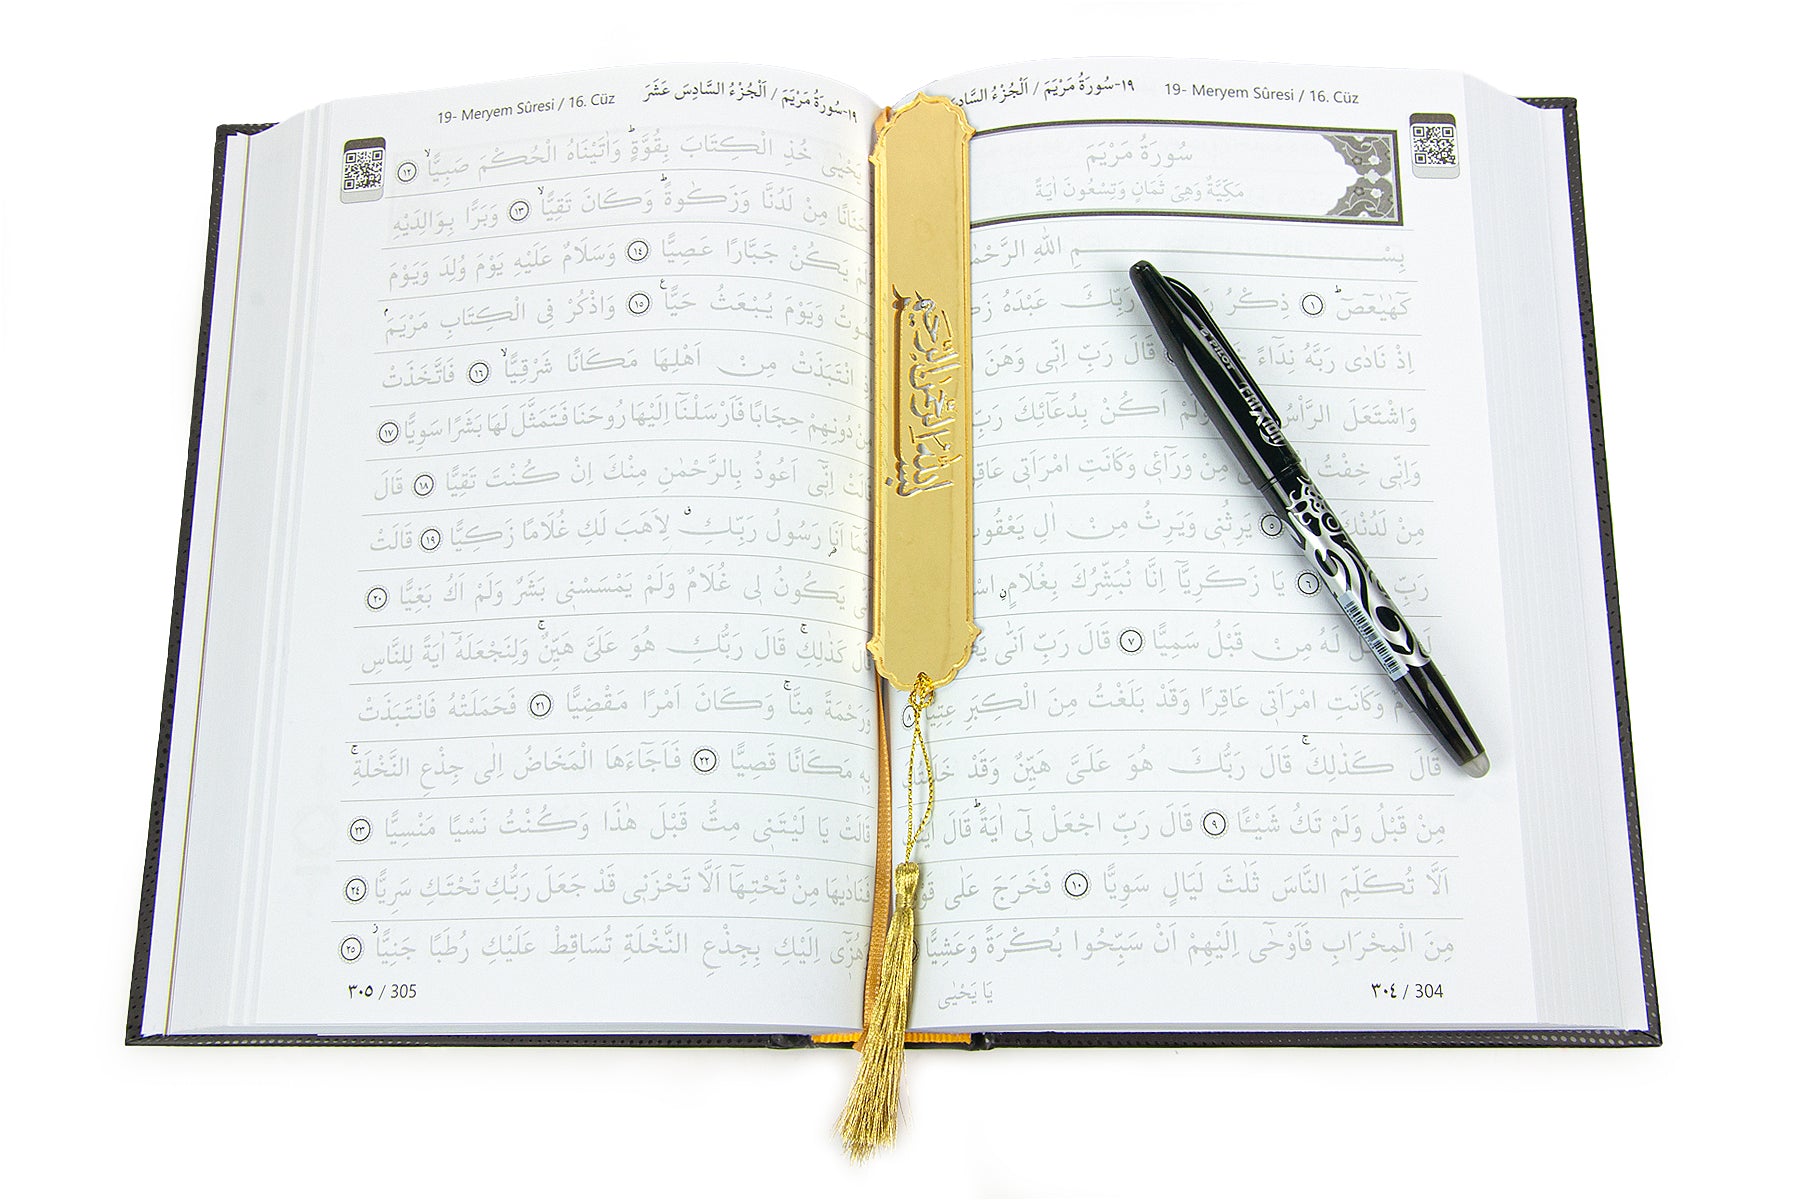 19- Meryem Sûresi / 16. Cüz
١٩-سُورَةُ مَرْيَمَ / اَلْجُزْءُ السَّادِسَ
سُورَةُ مَرْيَمَ
مَكِّيَّةٌ وَهِيَ ثَمَانٍ وَتِسْعُونَ اٰيَةً
بِسْمِ اللّٰهِ
كٓهٰيٰعٓصٓ ۜ ١ ذِكْرُ رَبِّكَ عَبْدَهُ
اِذْ نَادٰى رَبَّهُ نِدَٓاءً قَالَ رَبِّ اِنّٖى وَهَنَ
وَاشْتَعَلَ الرَّأْسُ وَلَمْ اَكُنْ بِدُعَٓائِكَ
وَاِنّٖى خِفْتُ مِنْ وَرَٓاءٖى وَكَانَتِ امْرَاَتٖى
مِنْ لَدُنْكَ ٥ يَرِثُنٖى وَيَرِثُ مِنْ اٰلِ
رَبِّ ٦ يَا زَكَرِيَّٓا اِنَّا نُبَشِّرُكَ بِغُلَامٍۨ
لَهُ مِنْ قَبْلُ سَمِيًّا ٧ قَالَ رَبِّ اَنّٰى
وَكَانَتِ امْرَاَتٖى عَاقِرًا وَقَدْ بَلَغْتُ مِنَ الْكِبَرِ عِتِيًّا ٨
قَالَ كَذٰلِكَۚ قَالَ رَبُّكَ هُوَ عَلَىَّ هَيِّنٌ وَقَدْ
مِنْ قَبْلُ وَلَمْ تَكُ شَيْـًٔا ٩ قَالَ رَبِّ اجْعَلْ لٖٓى اٰيَةًۜ قَالَ
اَلَّا تُكَلِّمَ النَّاسَ ثَلٰثَ لَيَالٍ سَوِيًّا ١٠ فَخَرَجَ عَلٰى
مِنَ الْمِحْرَابِ فَاَوْحٰٓى اِلَيْهِمْ اَنْ سَبِّحُوا بُكْرَةً وَعَشِيًّا
يَا يَحْيٰى
٣٠٤ / 304
19- Meryem Sûresi / 16. Cüz
١٩-سُورَةُ مَرْيَمَ / اَلْجُزْءُ السَّادِسَ عَشَرَ
يَحْيٰى خُذِ الْكِتَابَ بِقُوَّةٍۜ وَاٰتَيْنَاهُ الْحُكْمَ صَبِيًّاۙ ١٢
حَنَانًا مِنْ لَدُنَّا وَزَكٰوةًۜ وَكَانَ تَقِيًّاۙ ١٣ وَبَرًّا بِوَالِدَيْهِ
يَكُنْ جَبَّارًا عَصِيًّا ١٤ وَسَلَامٌ عَلَيْهِ يَوْمَ وُلِدَ وَيَوْمَ
وَيَوْمَ يُبْعَثُ حَيًّا ١٥ وَاذْكُرْ فِى الْكِتَابِ مَرْيَمَۢ
انْتَبَذَتْ مِنْ اَهْلِهَا مَكَانًا شَرْقِيًّاۙ ١٦ فَاتَّخَذَتْ
دُونِهِمْ حِجَابًا فَاَرْسَلْنَٓا اِلَيْهَا رُوحَنَا فَتَمَثَّلَ لَهَا بَشَرًا سَوِيًّا ١٧
قَالَتْ اِنّٖٓى اَعُوذُ بِالرَّحْمٰنِ مِنْكَ اِنْ كُنْتَ تَقِيًّا ١٨ قَالَ
اَنَا۬ رَسُولُ رَبِّكِۗ لِاَهَبَ لَكِ غُلَامًا زَكِيًّا ١٩ قَالَتْ
يَكُونُ لٖى غُلَامٌ وَلَمْ يَمْسَسْنٖى بَشَرٌ وَلَمْ اَكُ بَغِيًّا ٢٠
كَذٰلِكِۚ قَالَ رَبُّكِ هُوَ عَلَىَّ هَيِّنٌۚ وَلِنَجْعَلَهُٓ اٰيَةً لِلنَّاسِ
وَرَحْمَةً مِنَّاۚ وَكَانَ اَمْرًا مَقْضِيًّا ٢١ فَحَمَلَتْهُ فَانْتَبَذَتْ
بِهٖ مَكَانًا قَصِيًّا ٢٢ فَاَجَٓاءَهَا الْمَخَاضُ اِلٰى جِذْعِ النَّخْلَةِۚ
قَالَتْ يَا لَيْتَنٖى مِتُّ قَبْلَ هٰذَا وَكُنْتُ نَسْيًا مَنْسِيًّا ٢٣
فَنَادٰيهَا مِنْ تَحْتِهَٓا اَلَّا تَحْزَنٖى قَدْ جَعَلَ رَبُّكِ تَحْتَكِ سَرِيًّا ٢٤
وَهُزّٖٓى اِلَيْكِ بِجِذْعِ النَّخْلَةِ تُسَاقِطْ عَلَيْكِ رُطَبًا جَنِيًّاۘ ٢٥
٣٠٥ / 305
بسم الله الرحمن الرحيم
PILOT FRIXION